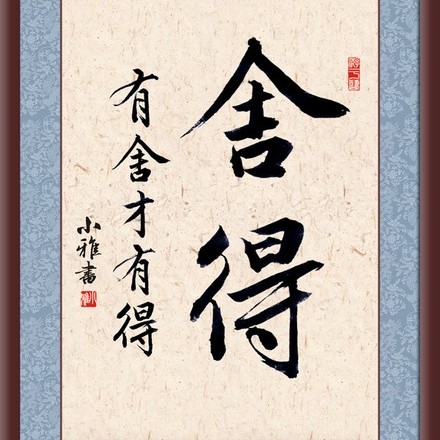 舍得
有舍才有得
小雅書